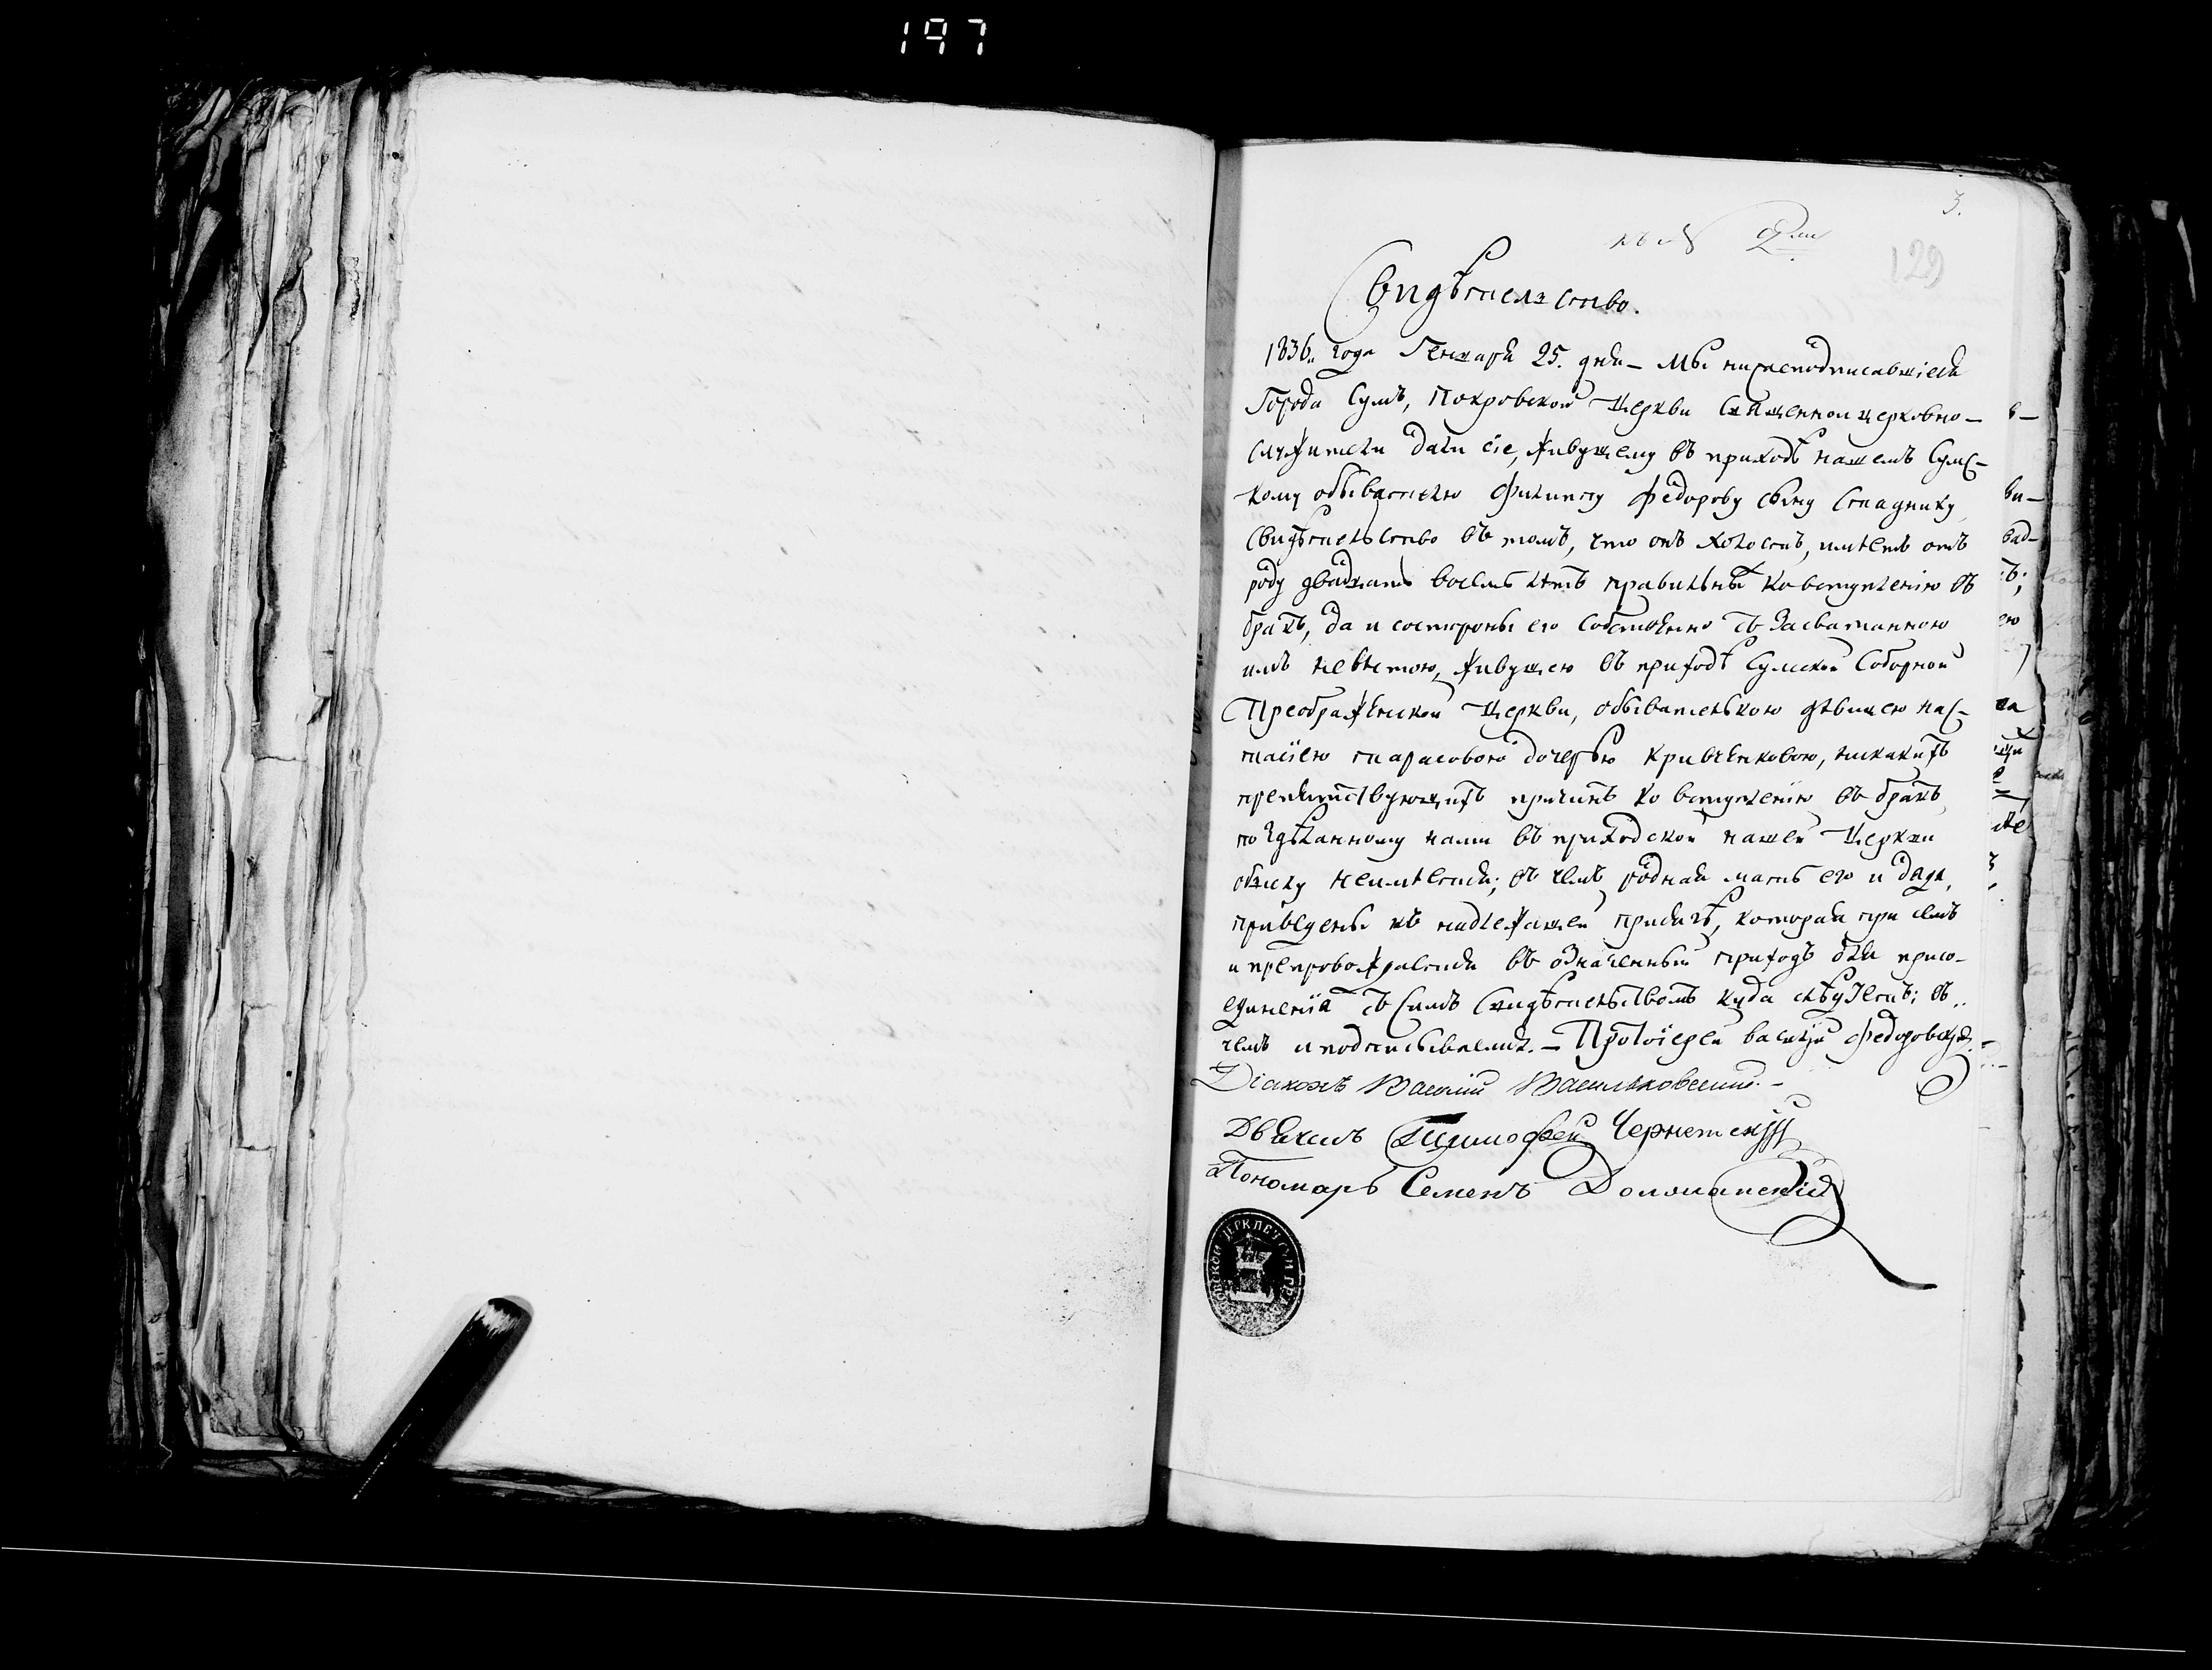 197
3.
къ №
129
Свидѣтельство.
1836. года Генваря 25. дня – Мы нижеподписавшіеся
Города Сумъ, Покровской Церкви Священноицерковно-
служители дали сіе, живущему въ приходѣ нашемъ Сумс-
кому обывателю Филиппу Федорову сыну Стаднику
свидѣтельство въ томъ, что онъ холостъ, имѣетъ отъ
роду двадцать восемь лѣтъ правильныхъ ко вступленію въ
бракъ, да и состороны его собственно съ Засватанною
имъ невѣстою, живущею въ приходѣ Сумской Соборной
Преображенской Церкви, обывательскою дѣвицею нас-
тасіею тарасовою дочерью Кривченковою, никакихъ
препятствующихъ причинъ ко вступленію въ бракъ
по Здѣланному нами въ приходской нашей Церкви
обыску неимѣется; въ чемъ родная мать его и дядя,
приведены къ надлежащей присягѣ, которая при семъ
и препровождается въ означенный приходъ для присо-
единенія съ симъ Свидѣтельствомъ куда слѣдуетъ; въ
чемъ и подписываемся. – Протоіерей василій Федоровскій.
Діаконъ Василій Васильковскій. –
Дьячекъ Тимофей Чернетскій
Пономарь Семенъ Доломанскій